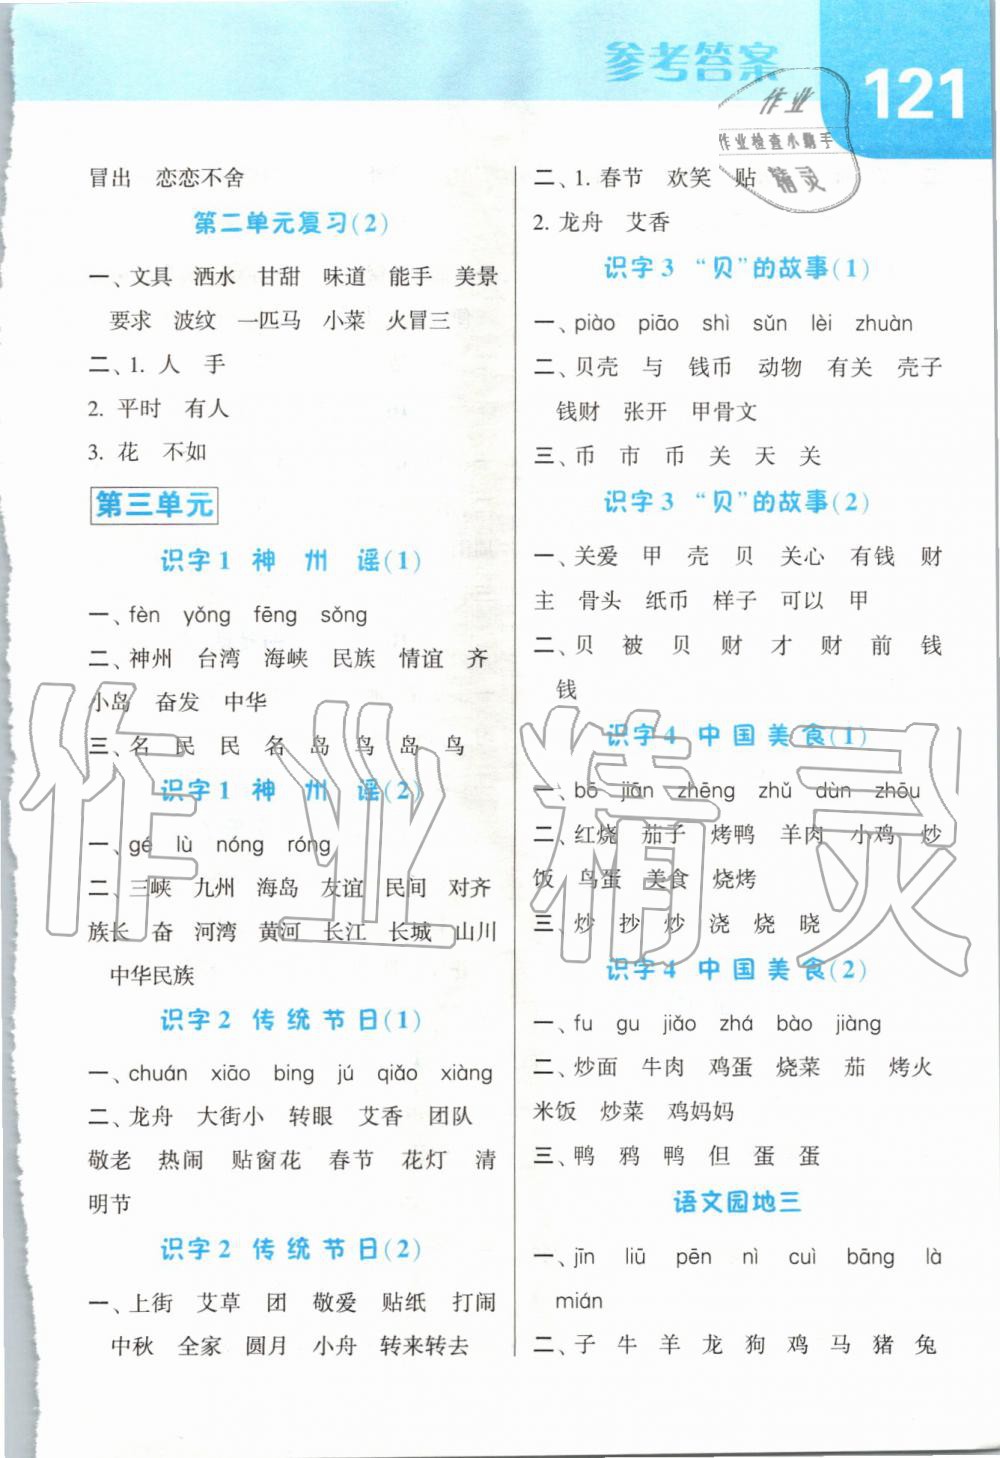 参考答案
121
作业
作业检查小助手
精灵
冒出 恋恋不舍
第二单元复习(2)
一、文具 洒水 甘甜 味道 能手 美景
要求 波纹 一匹马 小菜 火冒三
二、1. 人 手
2. 平时 有人
3. 花 不如
第三单元
识字1 神州谣(1)
一、fèn yǒng fēng sǒng
二、神州 台湾 海峡 民族 情谊 齐
小岛 奋发 中华
三、名 民 民 名 岛 鸟 岛 鸟
识字1 神州谣(2)
一、gé lù nóng róng
二、三峡 九州 海岛 友谊 民间 对齐
族长 奋 河湾 黄河 长江 长城 山川
中华民族
识字2 传统节日(1)
一、chuán xiāo bing jú qiǎo xiàng
二、龙舟 大街小 转眼 艾香 团队
敬老 热闹 贴窗花 春节 花灯 清
明节
识字2 传统节日(2)
一、上街 艾草 团 敬爱 贴纸 打闹
中秋 全家 圆月 小舟 转来转去
二、1. 春节 欢笑 贴
2. 龙舟 艾香
识字3 “贝”的故事(1)
一、piào piāo shì sǔn lèi zhuàn
二、贝壳 与 钱币 动物 有关 壳子
钱财 张开 甲骨文
三、币 市 币 关 天 关
识字3 “贝”的故事(2)
一、关爱 甲 壳 贝 关心 有钱 财
主 骨头 纸币 样子 可以 甲
二、贝 被 贝 财 才 财 前 钱
钱
识字4 中国美食(1)
一、bō jiān zhēng zhǔ dùn zhōu
二、红烧 茄子 烤鸭 羊肉 小鸡 炒
饭 鸟蛋 美食 烧烤
三、炒 抄 炒 浇 烧 晓
识字4 中国美食(2)
一、fu gu jiǎo zhá bào jiàng
二、炒面 牛肉 鸡蛋 烧菜 茄 烤火
米饭 炒菜 鸡妈妈
三、鸭 鸦 鸭 但 蛋 蛋
语文园地三
一、jīn liū pēn nì cuì bāng là
mián
二、子 牛 羊 龙 狗 鸡 马 猪 兔
作业精灵